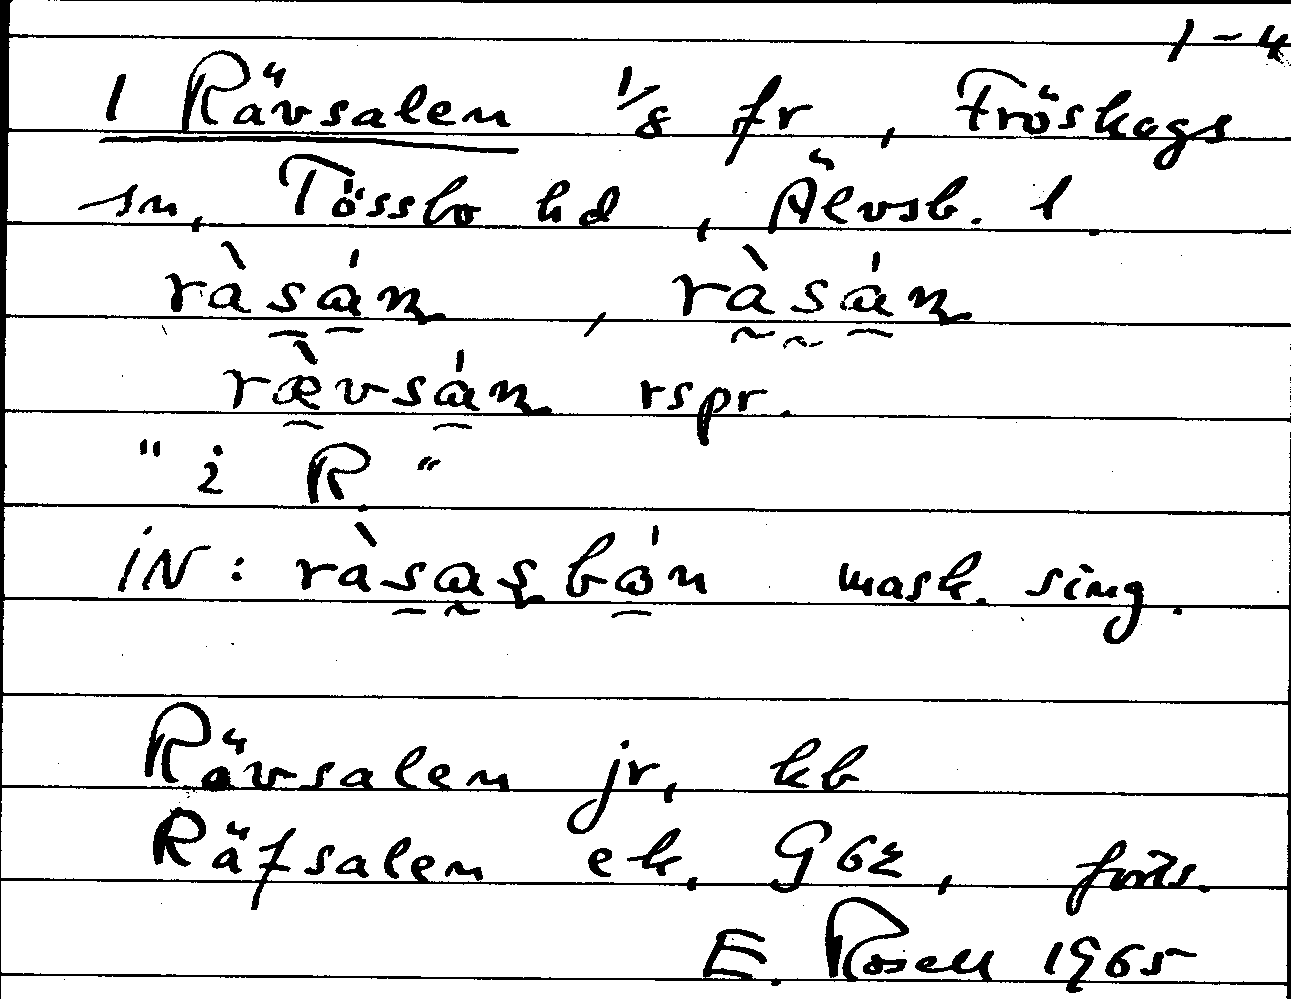 1-4
1 Rävsalen 1/8 fr, Fröskogs
sn, Tössbo hd, Älvsb. l.
ràsán, ràsán
rævsán rspr.
" i R. "
iN: ràsasbón mask. sing.
Rävsalen jr, kb
Räfsalen ek, G62, forts.
E. Rosell 1965